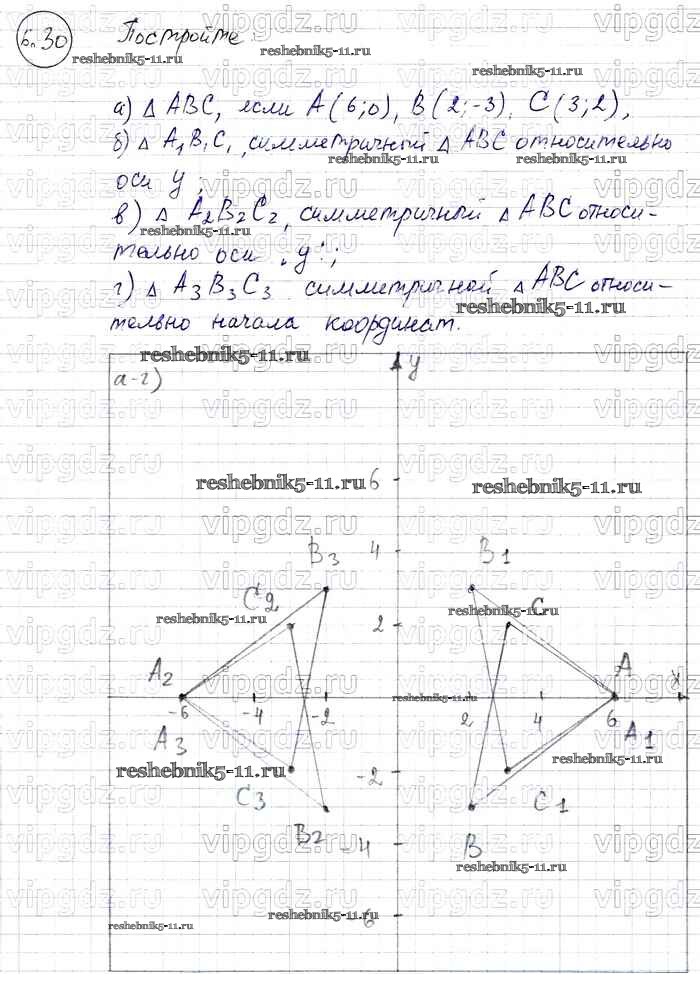 Б.30 Постройте
а) △ ABC, если A(6;0), B(2;-3), C(3;2),
б) △ A₁B₁C₁, симметричный △ ABC относительно
оси y;
в) △ A₂B₂C₂, симметричный △ ABC относи-
тельно оси „y";
г) △ A₃B₃C₃ симметричной △ ABC относи-
тельно начала координат.
а-г)
y
6
B₃ 4 B₁
C₂ 2 C
A₂ A x
-6 -4 -2 2 4 6
A₃ A₁
-2
C₃ C₁
B₂ B
-4
6
reshebnik5-11.ru
vipgdz.ru